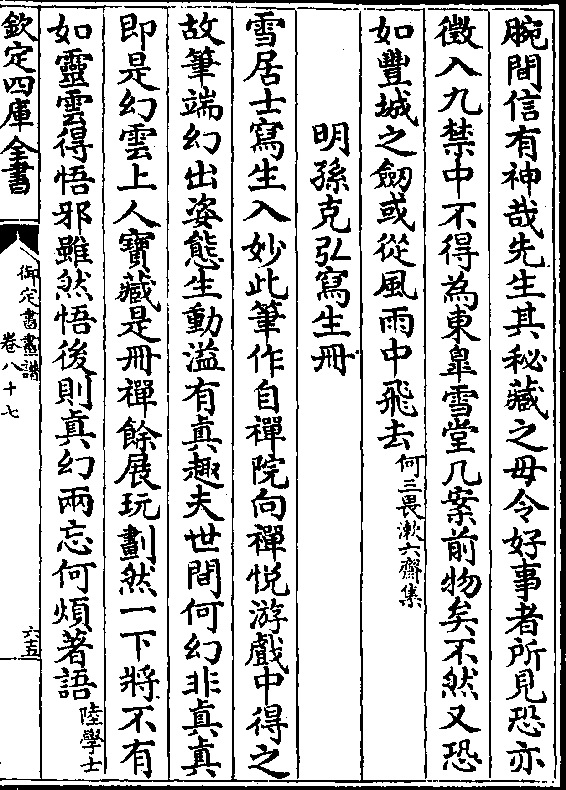 腕間信有神哉先生其秘藏之毋令好事者所見恐亦
徴入九禁中不得為東臯雪堂几案前物矣不然又恐
如豐城之劒或從風雨中飛去何三畏漱六齋集
明孫克弘寫生冊
雪居士寫生入妙此筆作自禪院向禪悅游戲中得之
故筆端幻出姿態生動溢有真趣夫世間何幻非真真
即是幻雲上人寶藏是冊禪餘展玩劃然一下將不有
如靈雲得悟邪雖然悟後則真幻兩忘何煩著語陸學士
欽定四庫全書
御定書畫譜
卷八十七
六五